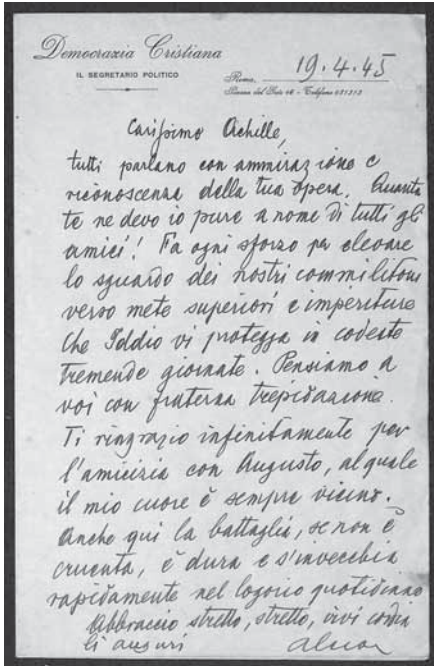 Democrazia Cristiana
IL SEGRETARIO POLITICO
Roma, 19.4.45
Piazza del Gesù 46 - Telefono
Carissimo Achille,
tutti parlano con ammirazione e
riconoscenza della tua opera. Quanta
te ne devo io pure a nome di tutti gli
amici! Fa ogni sforzo per elevare
lo sguardo dei nostri commilitoni
verso mete superiori e imperiture
Che Iddio vi protegga in codeste
tremende giornate. Pensiamo a
voi con fraterna trepidazione.
Ti ringrazio infinitamente per
l'amicizia con Augusto, al quale
il mio cuore è sempre vicino.
Anche qui la battaglia, se non è
cruenta, è dura e s'invecchia
rapidamente nel logorio quotidiano
Abbraccio stretto, stretto, vivi cordia
li auguri